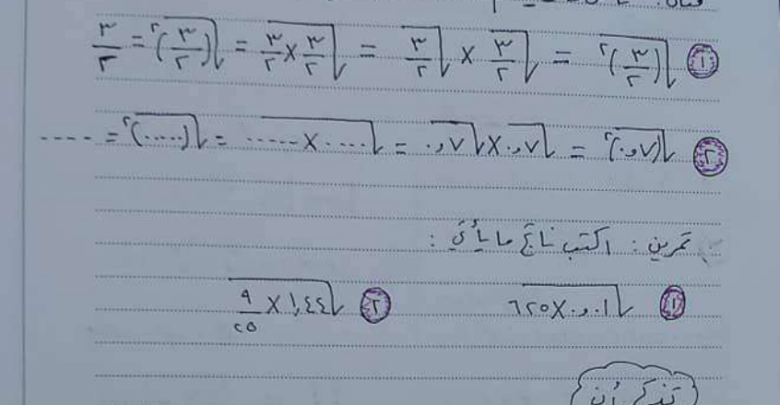 ① √(٣/٢)² = √٣/٢ × √٣/٢ = √(٣/٢ × ٣/٢) = √(٣/٢)² = ٣/٢
② √(٠,٧)² = √٠,٧ × √٠,٧ = √..... × ..... = √(.....)² = ....
تمرين : اكتب ناتج ما يأتي :
① √٠,٠١ × ٦٢٥ ② √١,٤٤ × ٩/٢٥
تذكر أن